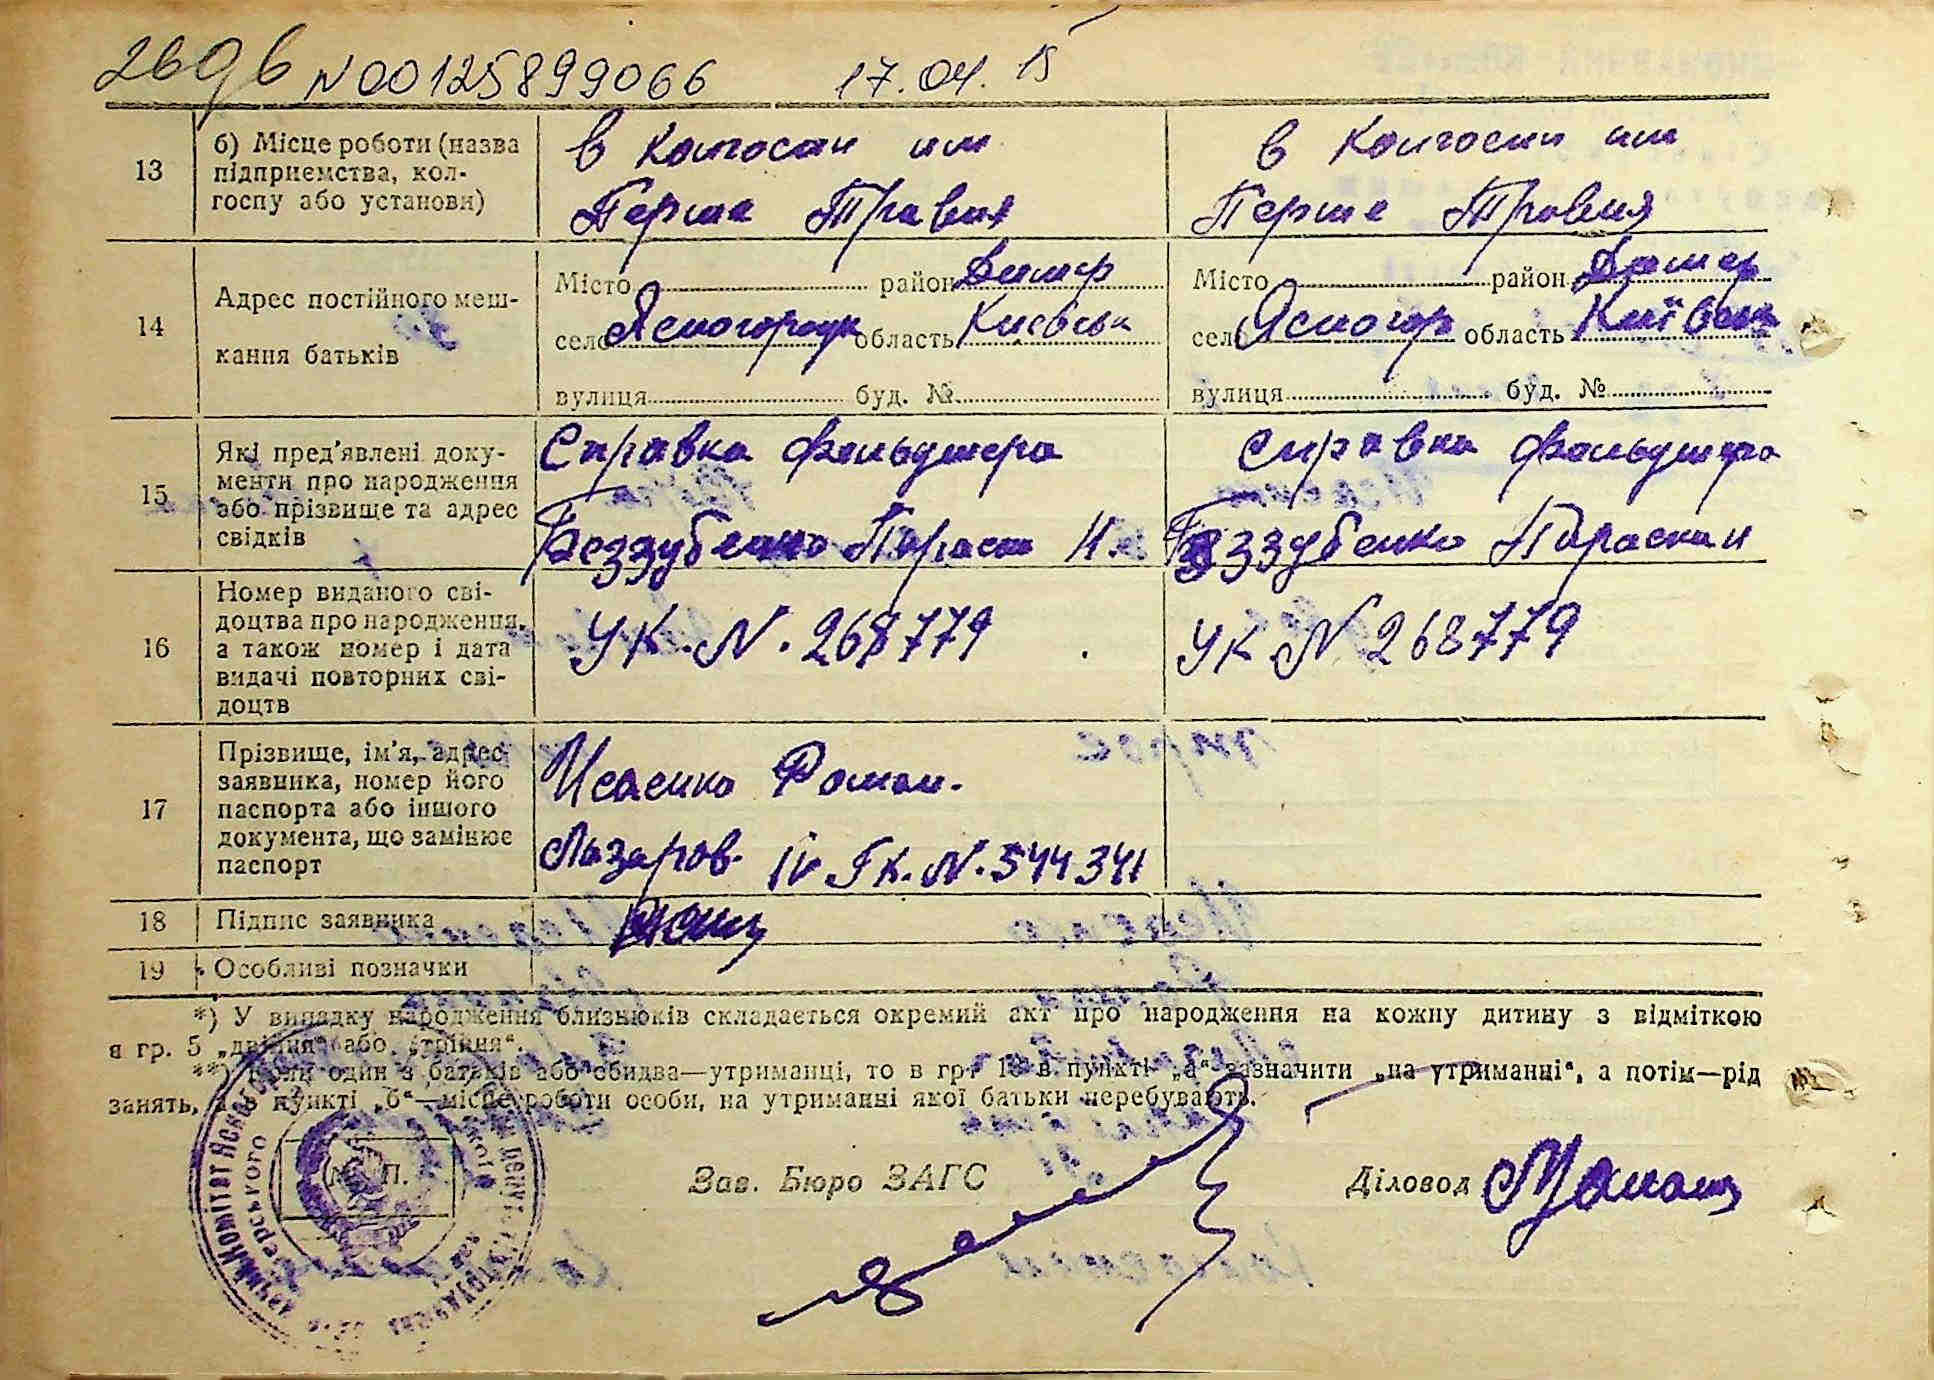 N00125899066 17.04.15
13
б) Місце роботи (назва
підприємства, кол-
госпу або установи)
в колгоспи им
Перше Травня
в колгоспи им
Перше Травня
14
Адрес постійного меш-
кання батьків
Місто район Димер
село область Киевська
вулиця буд. №
Місто район Димер
село Ясногор область Київська
вулиця буд. №
15
Які пред'явлені доку-
менти про народження
або прізвище та адрес
свідків
Справка фельдшера
Беззубенко Параски Н.
Справка фельдшера
Беззубенко Параски Н
16
Номер виданого сві-
доцтва про народження,
а також номер і дата
видачі повторних сві-
доцтв
УК. N. 268779
УК N 268779
17
Прізвище, ім'я, адрес
заявника, номер його
паспорта або іншого
документа, що замінює
паспорт
Исаенко Роман.
Лазаров. IV ГК. N. 544341
18
Підпис заявника
19
Особливі позначки
*) У випадку народження близнюків складається окремий акт про народження на кожну дитину з відміткою
в гр. 5 „двійня" або „трійня".
**) Коли один з батьків або обидва—утриманці, то в гр. 13 в пункті „а" зазначити „на утриманні", а потім—рід
занять, а в пункті „б"—місце роботи особи, на утриманні якої батьки перебувають.
М. П.
Зав. Бюро ЗАГС
Діловод